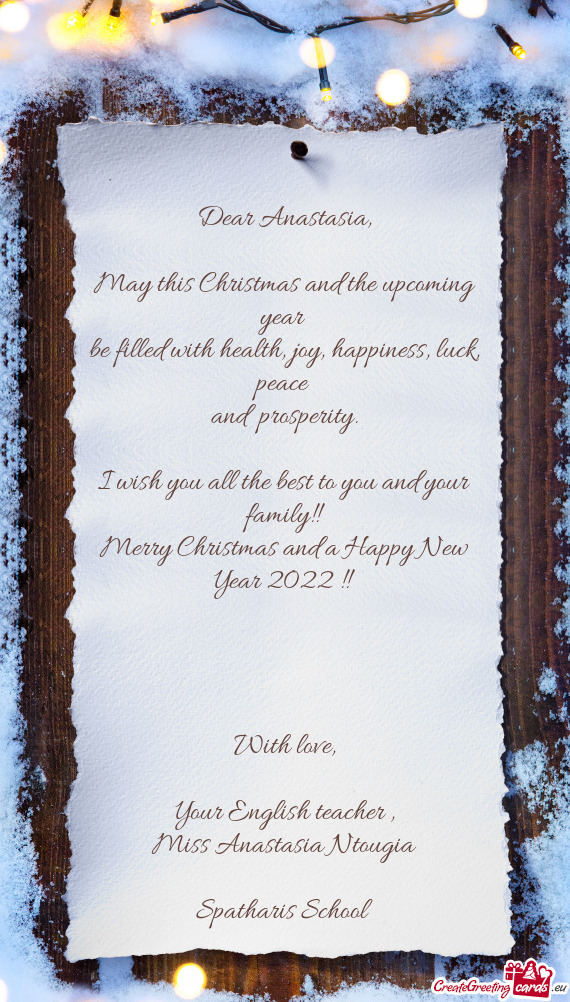 Dear Anastasia,
May this Christmas and the upcoming
year
be filled with health, joy, happiness, luck,
peace
and prosperity.
I wish you all the best to you and your
family!!
Merry Christmas and a Happy New
Year 2022 !!
With love,
Your English teacher ,
Miss Anastasia Ntougia
Spatharis School
CreateGreetingcards.eu